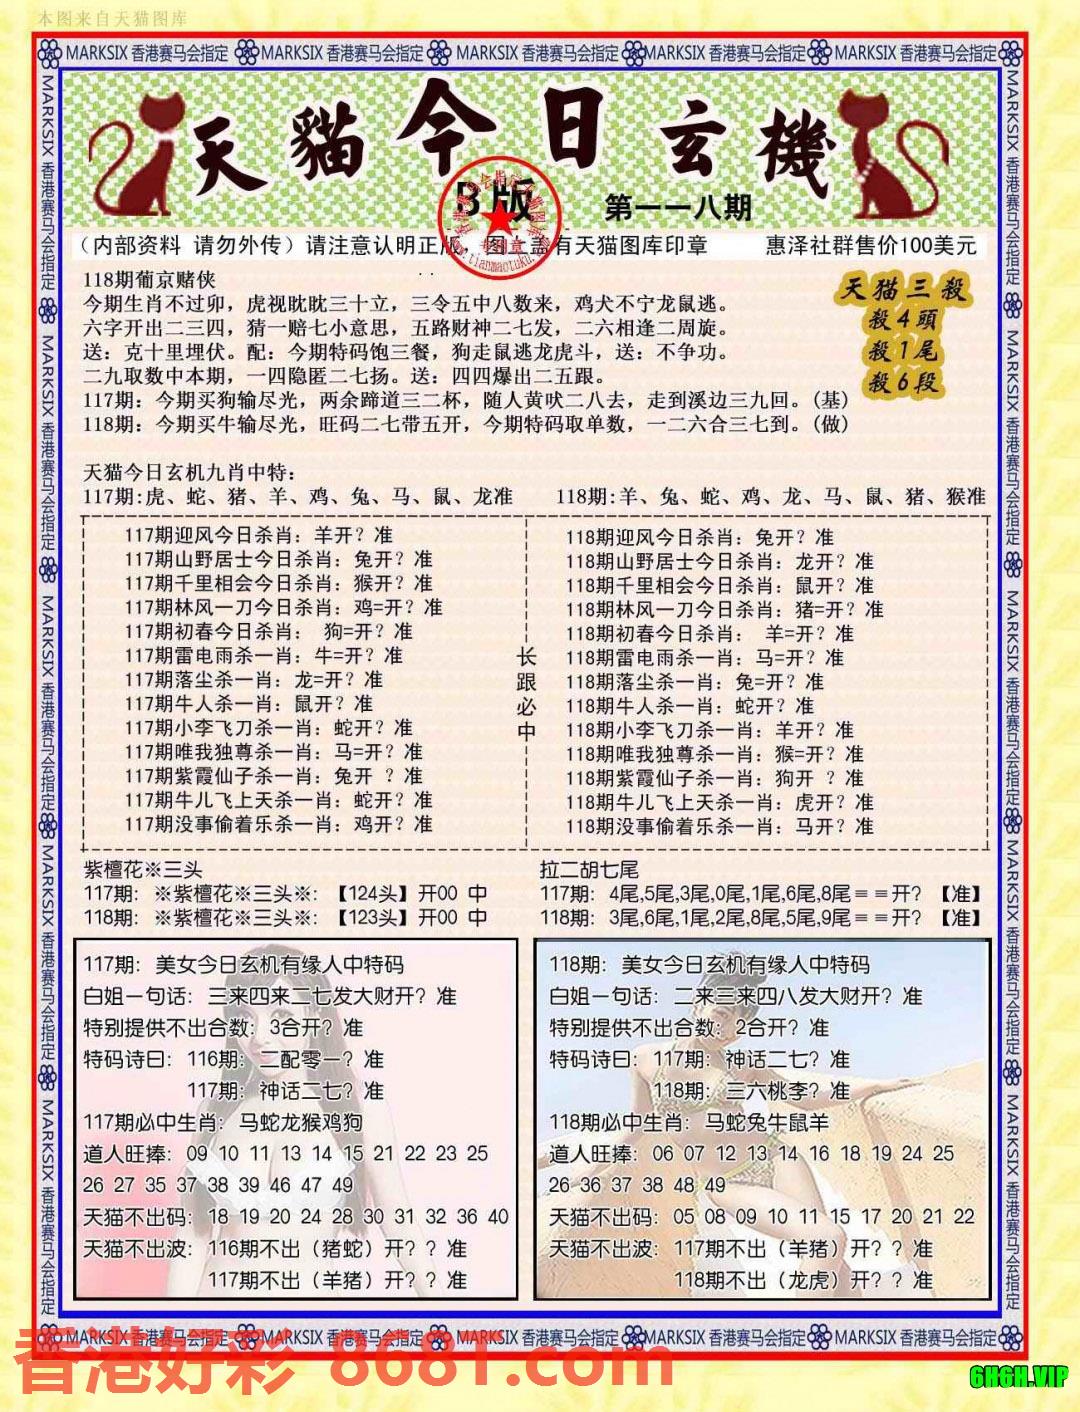 本图来自天猫图库
MARKSIX 香港赛马会指定 MARKSIX 香港赛马会指定 MARKSIX 香港赛马会指定 MARKSIX 香港赛马会指定 MARKSIX 香港赛马会指定
天貓今日玄機
B版 第一一八期
（内部资料 请勿外传）请注意认明正版，图上盖有天猫图库印章 惠泽社群售价100美元
118期葡京赌侠
今期生肖不过卯，虎视眈眈三十立，三令五中八数来，鸡犬不宁龙鼠逃。
六字开出二三四，猜一赔七小意思，五路财神二七发，二六相逢二周旋。
送：克十里埋伏。配：今期特码饱三餐，狗走鼠逃龙虎斗，送：不争功。
二九取数中本期，一四隐匿二七扬。送：四四爆出二五跟。
117期：今期买狗输尽光，两余蹄道三二杯，随人黄吠二八去，走到溪边三九回。(基)
118期：今期买牛输尽光，旺码二七带五开，今期特码取单数，一二六合三七到。(做)
天猫三殺
殺4頭
殺1尾
殺6段
天猫今日玄机九肖中特：
117期:虎、蛇、猪、羊、鸡、兔、马、鼠、龙准 118期:羊、兔、蛇、鸡、龙、马、鼠、猪、猴准
117期迎风今日杀肖：羊开？准
117期山野居士今日杀肖：兔开？准
117期千里相会今日杀肖：猴开？准
117期林风一刀今日杀肖：鸡=开？准
117期初春今日杀肖： 狗=开？准
117期雷电雨杀一肖：牛=开？准
117期落尘杀一肖：龙=开？准
117期牛人杀一肖：鼠开？准
117期小李飞刀杀一肖：蛇开？准
117期唯我独尊杀一肖：马=开？准
117期紫霞仙子杀一肖：兔开 ？准
117期牛儿飞上天杀一肖：蛇开？准
117期没事偷着乐杀一肖：鸡开？准
长跟必中
118期迎风今日杀肖：兔开？准
118期山野居士今日杀肖：龙开？准
118期千里相会今日杀肖：鼠开？准
118期林风一刀今日杀肖：猪=开？准
118期初春今日杀肖： 羊=开？准
118期雷电雨杀一肖：马=开？准
118期落尘杀一肖：兔=开？准
118期牛人杀一肖：蛇开？准
118期小李飞刀杀一肖：羊开？准
118期唯我独尊杀一肖：猴=开？准
118期紫霞仙子杀一肖：狗开 ？准
118期牛儿飞上天杀一肖：虎开？准
118期没事偷着乐杀一肖：马开？准
紫檀花※三头
117期：※紫檀花※三头※：【124头】开00 中
118期：※紫檀花※三头※：【123头】开00 中
拉二胡七尾
117期：4尾,5尾,3尾,0尾,1尾,6尾,8尾＝＝开？【准】
118期：3尾,6尾,1尾,2尾,8尾,5尾,9尾＝＝开？【准】
117期：美女今日玄机有缘人中特码
白姐一句话：三来四来二七发大财开？准
特别提供不出合数：3合开？准
特码诗曰：116期：二配零一？准
117期：神话二七？准
117期必中生肖：马蛇龙猴鸡狗
道人旺捧：09 10 11 13 14 15 21 22 23 25
26 27 35 37 38 39 46 47 49
天猫不出码：18 19 20 24 28 30 31 32 36 40
天猫不出波：116期不出（猪蛇）开？？准
117期不出（羊猪）开？？准
118期：美女今日玄机有缘人中特码
白姐一句话：二来三来四八发大财开？准
特别提供不出合数：2合开？准
特码诗曰：117期：神话二七？准
118期：三六桃李？准
118期必中生肖：马蛇兔牛鼠羊
道人旺捧：06 07 12 13 14 16 18 19 24 25
26 36 37 38 48 49
天猫不出码：05 08 09 10 11 15 17 20 21 22
天猫不出波：117期不出（羊猪）开？？准
118期不出（龙虎）开？？准
MARKSIX 香港赛马会指定 MARKSIX 香港赛马会指定 MARKSIX 香港赛马会指定 MARKSIX 香港赛马会指定 MARKSIX 香港赛马会指定
香港好彩 8681.com
6H6H.VIP